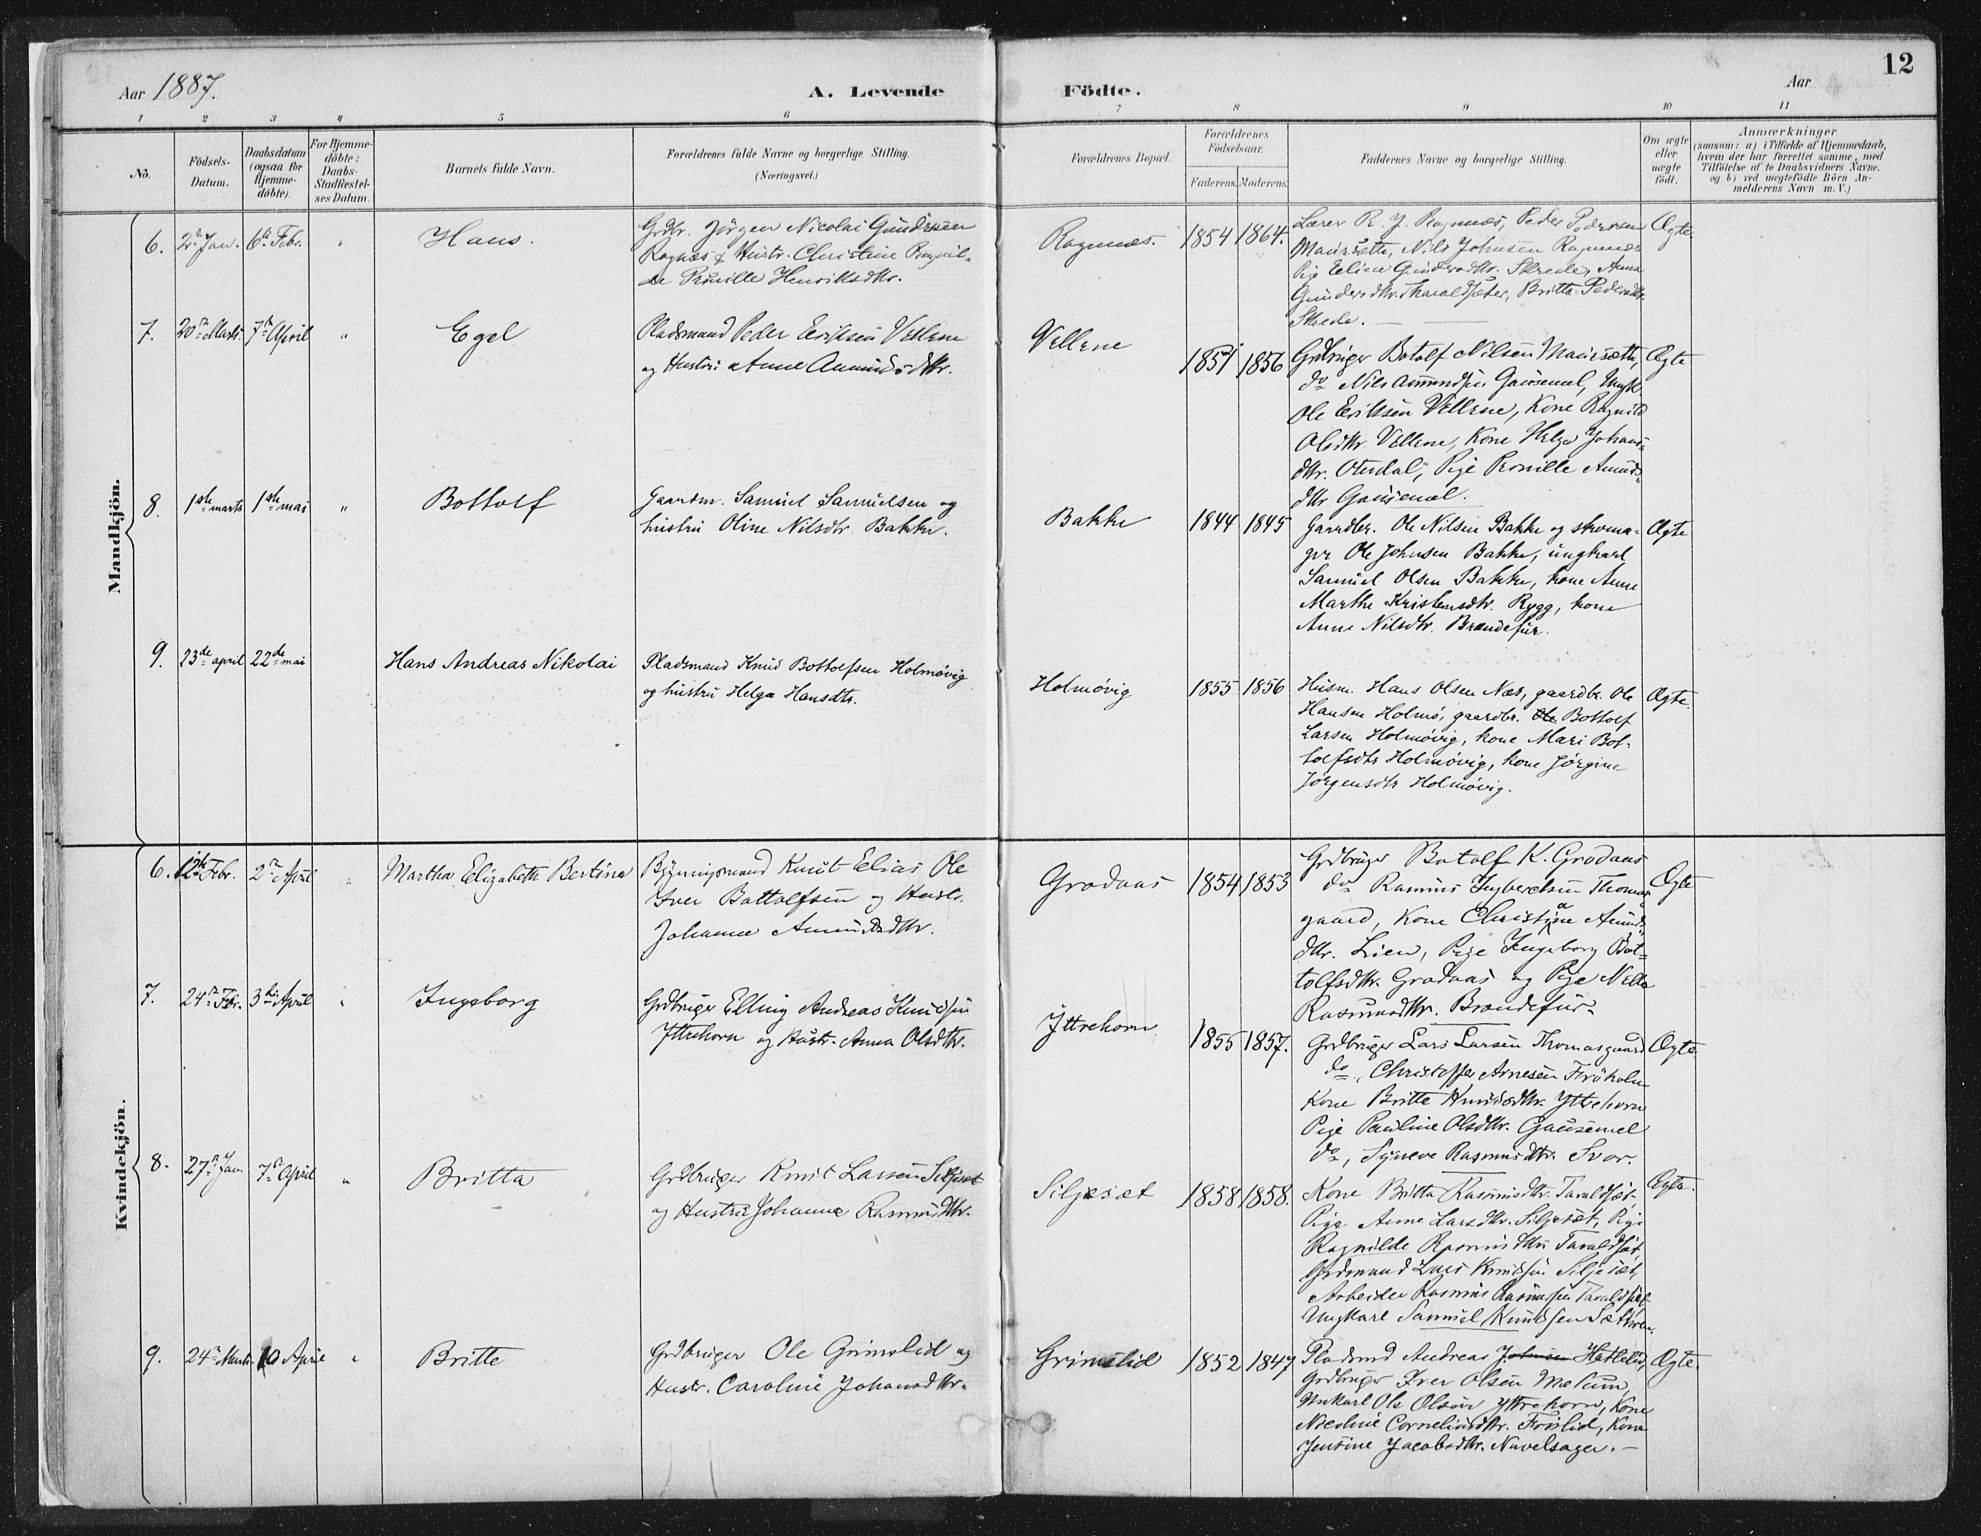 12
Aar 1887.
A. Levende
Födte.
Aar
1 2 3 4 5 6 7 8 9 10 11
No.
Födsels-
Datum.
Daabsdatum
(ogsaa for
Hjemme-
döbte).
For Hjemme-
döbte:
Daabs-
Stadfæstel-
ses Datum.
Barnets fulde Navn.
Forældrenes fulde Navne og borgerlige Stilling.
(Næringsvei.)
Forældrenes Bopæl.
Forældrenes
Födselsaar.
Faderens. Moderens.
Faddernes Navne og borgerlige Stilling.
Om ægte
eller
uægte
födt.
Anmærkninger
(saasom: a) i Tilfælde af Hjemmedaab,
hvem der har forrettet samme, med
Tilföielse af to Daabsvidners Navne.
og b) ved uægtefödte Börn An-
melderens Navn m. V.)
Mandkjön.
6. 2 Jan. 6 Febr. "
Hans.
Grdbr. Jörgen Nicolai Gundersen
Ragnæs & Hustr. Christine Ragnil-
de Pernille Henriksdtr.
Ragnnæs. 1854 1864.
Lærer R. J. Ragnnæs, Peder Pedersen
Maursætte, Nils Johnsen Ragnnæs
Pige Eline Gundersdtr. Skrede, Anna
Gundersdtr. Tharaldsæter, Britta Pedersdtr.
Skrede. —
Ægte
7. 20 Marts. 7 April "
Egel
Pladsmand Peder Eriksen Vellene
og Hustru Anne Amundsdtr.
Vellene
1851 1856
Grdbruger Botolf Nilsen Maursætte,
do Nils Amundsen Gausemel, Ungk.
Ole Eriksen Vellene, Kone Ragnild
Olsdtr Vellene, Kone Helga Johans-
dtr. Otterdal, Pige Pernille Amunds-
dtr Gausemel.
Ægte
8. 1ste marts 1ste mai "
Bottolf
Gaardm. Samuel Samuelsen og
hustru Oline Nilsdtr. Bakke.
Bakke 1844 1845
Gaardbr. Ole Nilsen Bakke og skoma-
ger Ole Johnsen Bakke, ungkarl
Samuel Olsen Bakke, kone Anne
Marthe Kristensdtr. Rygg, kone
Anne Nilsdtr. Brandefur.
Ægte
9. 23de april 22de mai
Hans Andreas Nikolai
Pladsmand Knud Bottolfsen Holmøvig
og hustru Helga Hansdtr.
Holmøvig 1855 1856
Husm. Hans Olsen Nær, gaardbr. Ole
Hansen Holmø, gaardbr. Ole Bottolf
Larsen Holmøvig, kone Mari Bot-
tolfsdtr Holmøvig, kone Jørgine
Jørgensdtr Holmøvig.
Ægte.
Kvindekjön.
6. 12te Febr. 2 April "
Martha Elizabeth Bertina
Bygningsmand Knut Elias Ole
Iver Bottolfsen og Hustr.
Johanne Amundsdtr.
Grodaas 1854 1853
Grdbruger Botolf K. Grodaas
do Rasmus Ingbertsen Thomas-
gaard, Kone Christine Amunds-
dtr. Lien, Pige Ingeborg Bot-
tolfsdtr. Grodaas og Pige Nille
Rasmusdtr. Brandefur.
Ægte
7. 24 Febr. 3die April "
Ingeborg
Grdbruger Elling Andreas Knudsen
Yttrehorn og Hustr. Anna Olsdtr.
Yttrehorn 1855 1857.
Grdbruger Lars Larsen Thomasgaard
do, Christoffer Arnesen Fröholm
Kone Britte Knudsdtr. Yttrehorn
Pige Pauline Olsdtr. Gausemel
do, Synneve Rasmusdtr. Svor.
Ægte
8. 27 Jan. 7 April "
Britta
Grdbruger Knut Larsen Siljeset
og Hustru Johanne Rasmusdtr.
Siljeset 1858 1858.
Kone Britta Rasmusdtr. Taraldset
Pige Anne Larsdtr. Siljeset, Pige
Ragnilde Rasmusdtr Taraldset,
Grdmand Lars Knudsen Siljeset,
Arbeider Rasmus Rasmusen Taraldset
Ungkarl Samuel Knudsen Sætren.
Ægte.
9. 24 Marts 10 April "
Britte
Grdbruger Ole Grimslid og
Hustr. Caroline Johansdtr.
Grimslid 1852 1847
Pladsmd Andreas Johnsen Hatlelid,
Grdbruger Iver Olsen Melum
Unkarl Ole Olsen Yttrehorn, Kone
Nicoline Corneliusdtr. Fröslid, Kone
Jensine Jacobsdtr. Navelsager. —
Ægte.